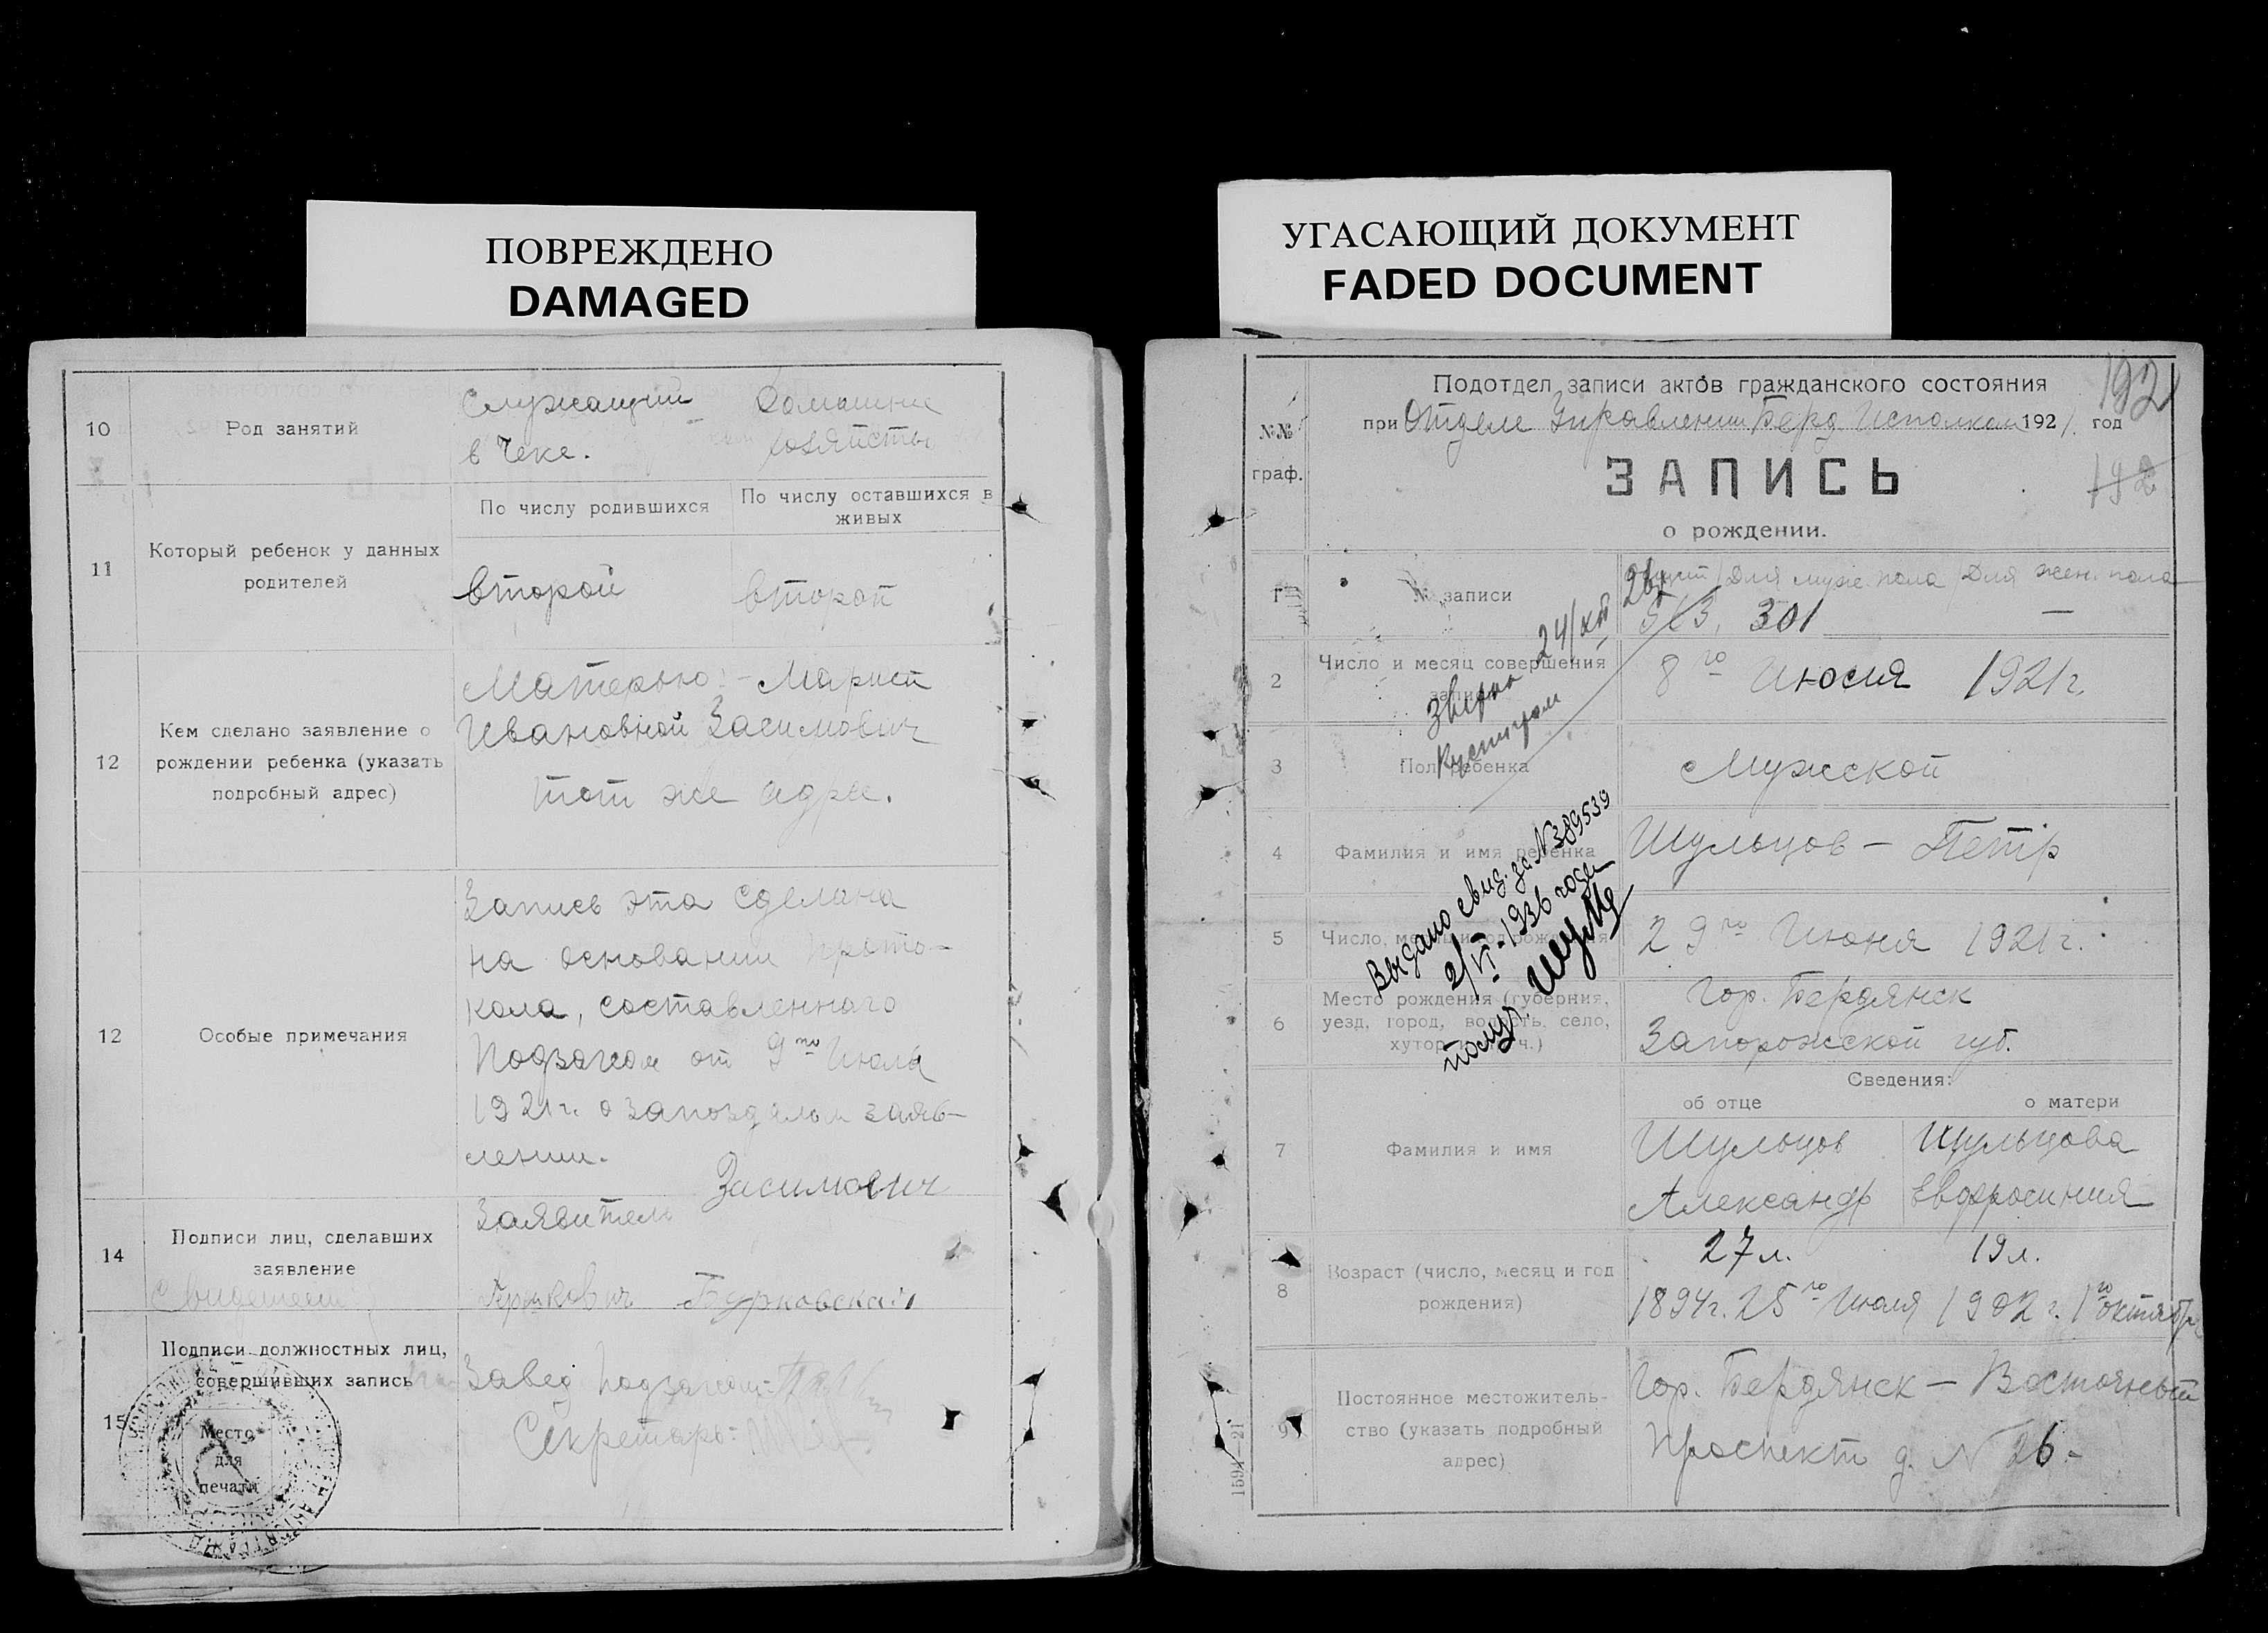 ПОВРЕЖДЕНО
DAMAGED
10
Род занятий
Служащий
в Чеке.
Домашние
хозяйство
11
Который ребенок у данных
родителей
По числу родившихся
По числу оставшихся в
живых
второй
второй
12
Кем сделано заявление о
рождении ребенка (указать
подробный адрес)
Матерью: – Марией
Ивановной Засимович
тот же адрес.
12
Особые примечания
Запись эта сделана
на основании прото–
кола, составленного
Подзагсом от 9го Июля
1921 г. о запоздалом заяв–
лении.
14
Подписи лиц, сделавших
заявление
Свидетели
Заявитель Засимович
Бурковская
15
Подписи должностных лиц,
совершивших запись
Место
для
печати
Завед Подзагсом:
Секретарь:
УГАСАЮЩИЙ ДОКУМЕНТ
FADED DOCUMENT
№№
граф.
Подотдел записи актов гражданского состояния
при Отделе Управлении Берд Исполком 1921 год
192
ЗАПИСЬ
192
о рождении.
№ записи
Для муж. пола Для жен. пола
301 —
24/XII
2
Число и месяц совершения
записи
8го Июля 1921 г.
3
Пол ребенка
Мужской
4
Фамилия и имя ребенка
Шульцов – Петр
Выдано свид. за N 389539
2/VI–1936 года
получ.
5
Число, месяц и год рождения
29го Июня 1921 г.
6
Место рождения (губерния,
уезд, город, волость, село,
хутор и т. ч.)
Гор. Бердянск
Запорожской губ.
Сведения:
об отце
о матери
7
Фамилия и имя
Шульцов
Александр
Шульцова
Евфросиния
8
Возраст (число, месяц и год
рождения)
27 л.
1894 г. 25го Июля
19 л.
1902 г. 1го октября
9
Постоянное местожитель-
ство (указать подробный
адрес)
Гор. Бердянск – Восточный
Проспект д. N 26 –
1594—21